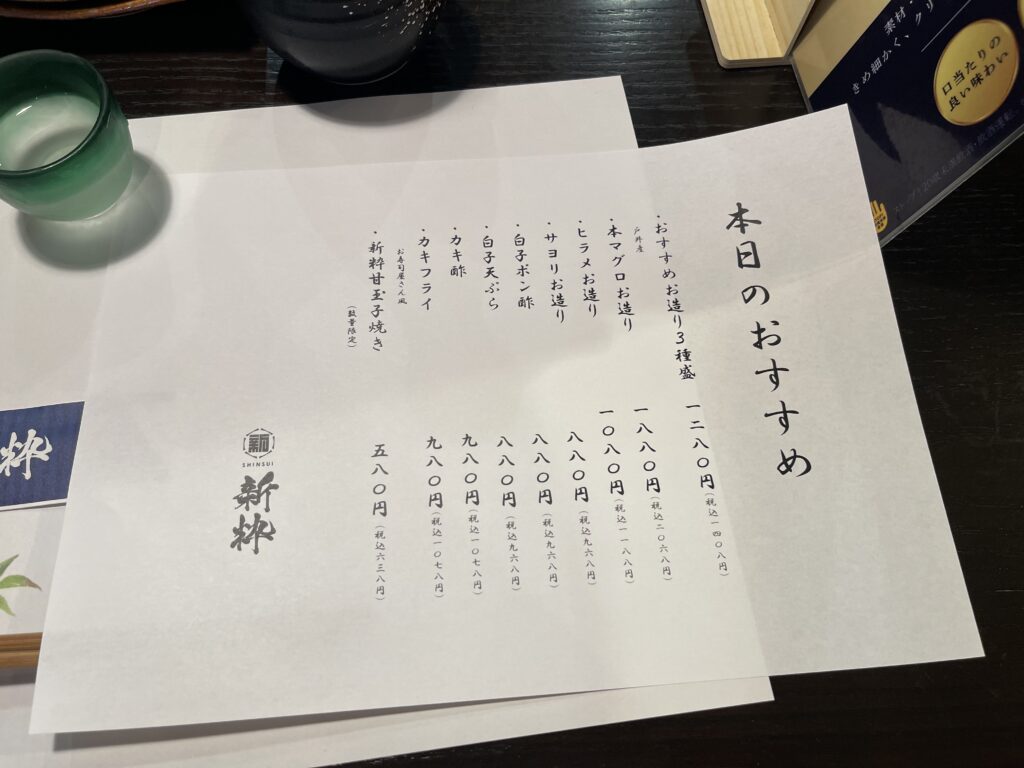 本日のおすすめ
・おすすめお造り3種盛 一二八〇円（税込一四〇八円）
戸井産
・本マグロお造り 一八八〇円（税込二〇六八円）
・ヒラメお造り 一〇八〇円（税込一一八八円）
・サヨリお造り 八八〇円（税込九六八円）
・白子ポン酢 八八〇円（税込九六八円）
・白子天ぷら 八八〇円（税込九六八円）
・カキ酢 九八〇円（税込一〇七八円）
・カキフライ 九八〇円（税込一〇七八円）
お寿司屋さん風
・新粋甘玉子焼き 五八〇円（税込六三八円）
（数量限定）
新
SHINSUI
新粋
粋
素材・
きめ細かく、クリ
口当たりの
良い味わい